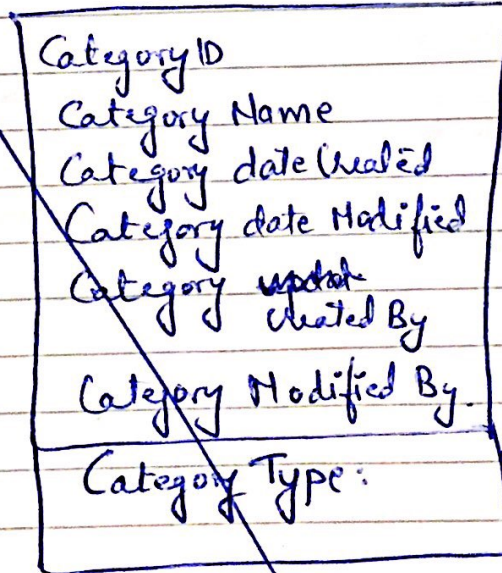 CategoryID
Category Name
Category date Created
Category date Modified
Category
created By
Category Modified By.
Category Type: